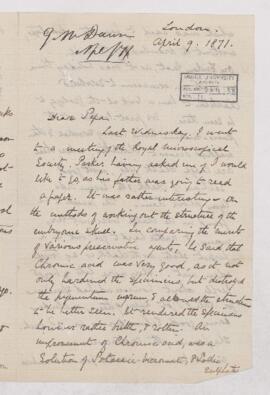 G M Dawson
London.
April 9. 1871.
Dear Papa
Last Wednesday, I went
to a meeting of the Royal Microscopical
Society, Parker having asked me if I would
like to go as his father was going to read
a paper. It was rather interesting on
the methods of working out the structure of the
embryonic skull. In comparing the merits
of various preservative agents, he said that
Chromic acid was very good, as it not
only hardened the specimens, but destroyed
the pigmentum nigrum & allowed the structure
to be better seen. It rendered the specimens
however rather brittle, & rotten. An
improvement of Chromic acid, was a
Solution of Potassic-bicromate, & Sodic
sulphate